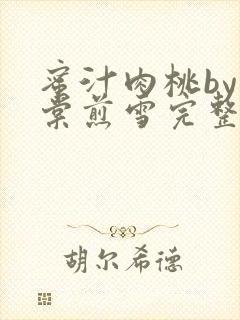 蜜汁肉桃by
棠煎雪完整
胡尔希德